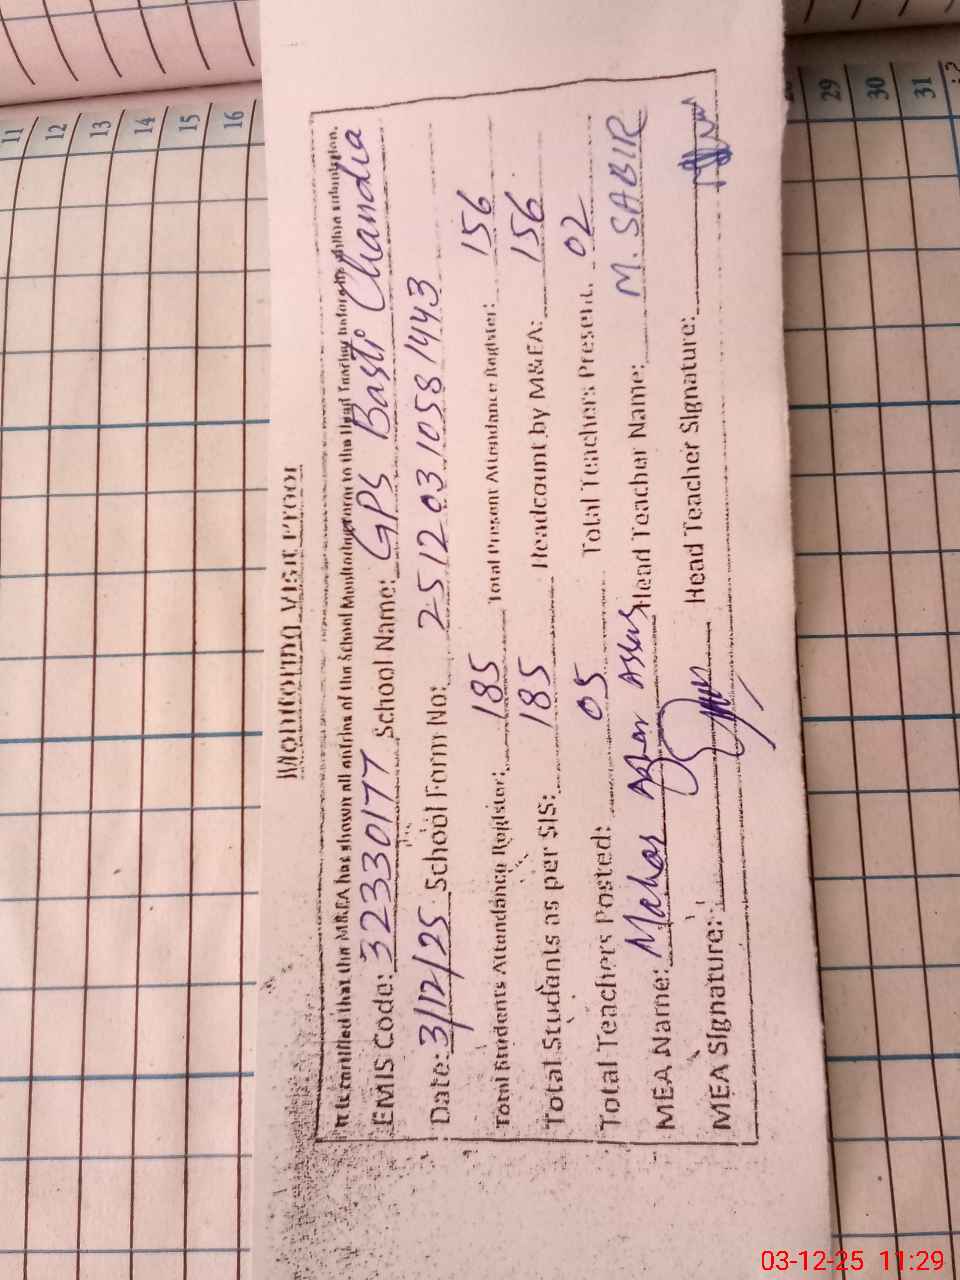 Monitoring Visit Proof
It is certified that the M&EA has shown all entries of the School Monitoring Form to the Head Teacher before its online submission.
EMIS Code: 32330177 School Name: GPS Basti Chandia
Date: 3/12/25 School Form No: 25120310581443
Total Students Attendance Register: 185 Total Present Attendance Register: 156
Total Students as per SIS: 185 Headcount by M&EA: 156
Total Teachers Posted: 05 Total Teachers Present. 02
MEA Name: Head Teacher Name: M. SABIR
MEA Signature: Head Teacher Signature:
11 12 13 14 15 16
29 30 31
03-12-25 11:29